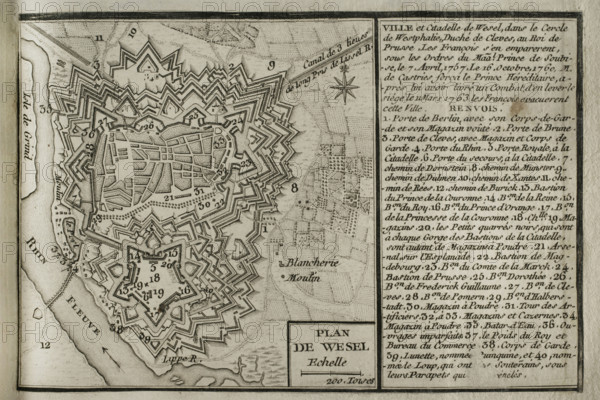 VILLE et Citadelle de Wesel, dans le Cercle
de Westphalie, Duché de Cleves, au Roi de
Prusse. Les François s'en emparerent,
sous les Ordres du Maâl Prince de Soubi-
se, le 7. Avril, 1757. Le 16. Octobre, 1760. M.
de Castries, força le Prince Héréditaire, a-
près lui avoir livré un Combat, d'en lever le
siége, le 11 Mars 1763, les François évacuerent
cette Ville.
RENVOIS.
1. Porte de Berlin, avec son Corps-de-Gar-
de et son Magazin voûté. 2. Porte de Brune
3. Porte de Cleves, avec Magazin et Corps de
Garde. 4. Porte du Rhin. 5. Porte Royale, à la
Citadelle. 6. Porte du secours, à la Citadelle. 7.
chemin de Dornstein. 8. chemin de Munster. 9.
chemin de Dulmen. 10. chemin de Xantes. 11. che-
min de Rées. 12. chemin de Burick. 13. Bastion
du Prince de la Couronne. 14. Bon. de la Reine. 15.
Bon. du Roy. 16. Bon. du Prince d'Orange. 17. Bon.
de la Princesse de la Couronne. 18. 19. Ma-
gazins. 20. les Petits quarrés noirs, qui sont
à chaque Gorge des Bastions de la Citadelle,
sont autant de Magazins à Poudre. 21. Arse-
nal, sur l'Esplanade. 22. Bastion de Mag-
debourg. 23. Bon. du Comte de la Marck. 24.
Bastion de Prusse. 25. Bon. Dorothée. 26.
Bon. de Frederick Guillaume. 27. Bon. de Cle-
ves. 28. Bon. de Pomern. 29. Bon. d'Halbers-
tadt. 30. Magazin à Poudre. 31. Tour des Ar-
tificiers. 32, à 33. Magazins et Casernes. 34.
Magazin à Poudre. 35. Batar-d'Eau. 36. Ou-
vrages imparfaits. 37. le Poids du Roy et
Bureau du Commerce. 38. Corps de Garde.
39. Lunette, nommée et 40, nom-
mée le Loup, qui ont Souterains, sous
leurs Parapets qui
Canal de 3 lieues
de long Pris de Lissel R.
Isle de Grind
RHIN
FLEUVE
Lippe R.
Blancherie
Moulin
PLAN
DE WESEL
Echelle
200. Toises
11
10
2
9
35
26
8
12